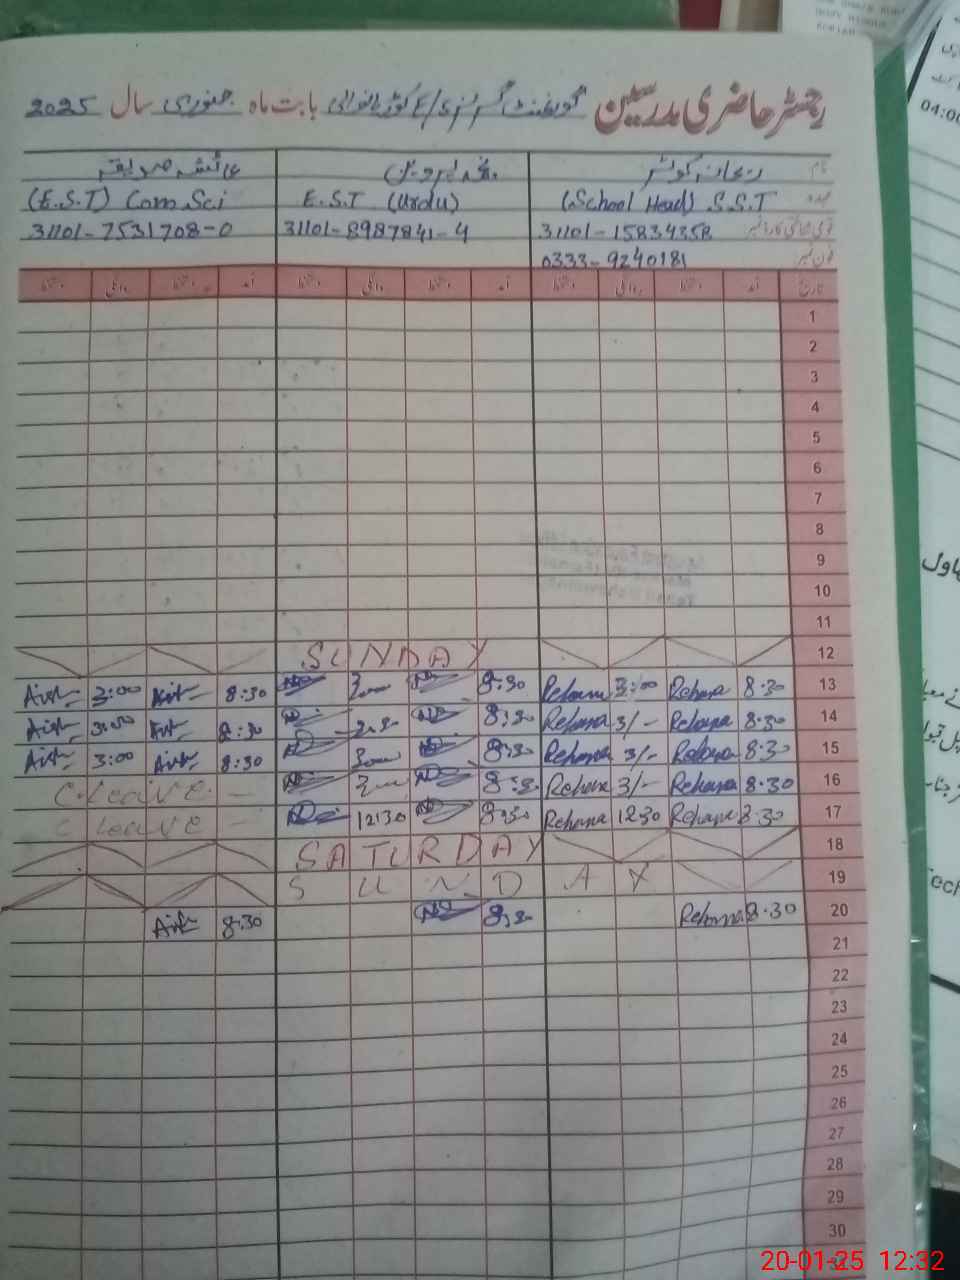 رجسٹر حاضری مدرسین گورنمنٹ گرلز بابت ماہ جنوری سال 2025
نام ریحانہ کوثر عائشہ صدیقہ
عہدہ (School Head) S.S.T E.S.T (Urdu) (E.S.T) Com Sci
قومی شناختی کارڈ نمبر 31101-15834358 31101-8987841-4 31101-7531708-0
فون نمبر 0333-9240181
تاریخ آمد دستخط روانگی دستخط آمد دستخط روانگی دستخط آمد دستخط روانگی دستخط
1
2
3
4
5
6
7
8
9
10
11
12 SUNDAY
13 8:30 Rehana 3:00 Rehana 8:30 8:30 3:00
14 8:30 Rehana 3/- Rehana 8:30 8:30 3:00
15 8:30 Rehana 3/- Rehana 8:30 8:30 3:00
16 8:30 Rehana 3/- Rehana 8:30 C.Leave
17 8:30 Rehana 12:30 Rehana 8:30 12:30 C Leave
18 SATURDAY
19 SUNDAY
20 8:30 Rehana 8:30 8:30
21
22
23
24
25
26
27
28
29
30
04:00
20-01-25 12:32